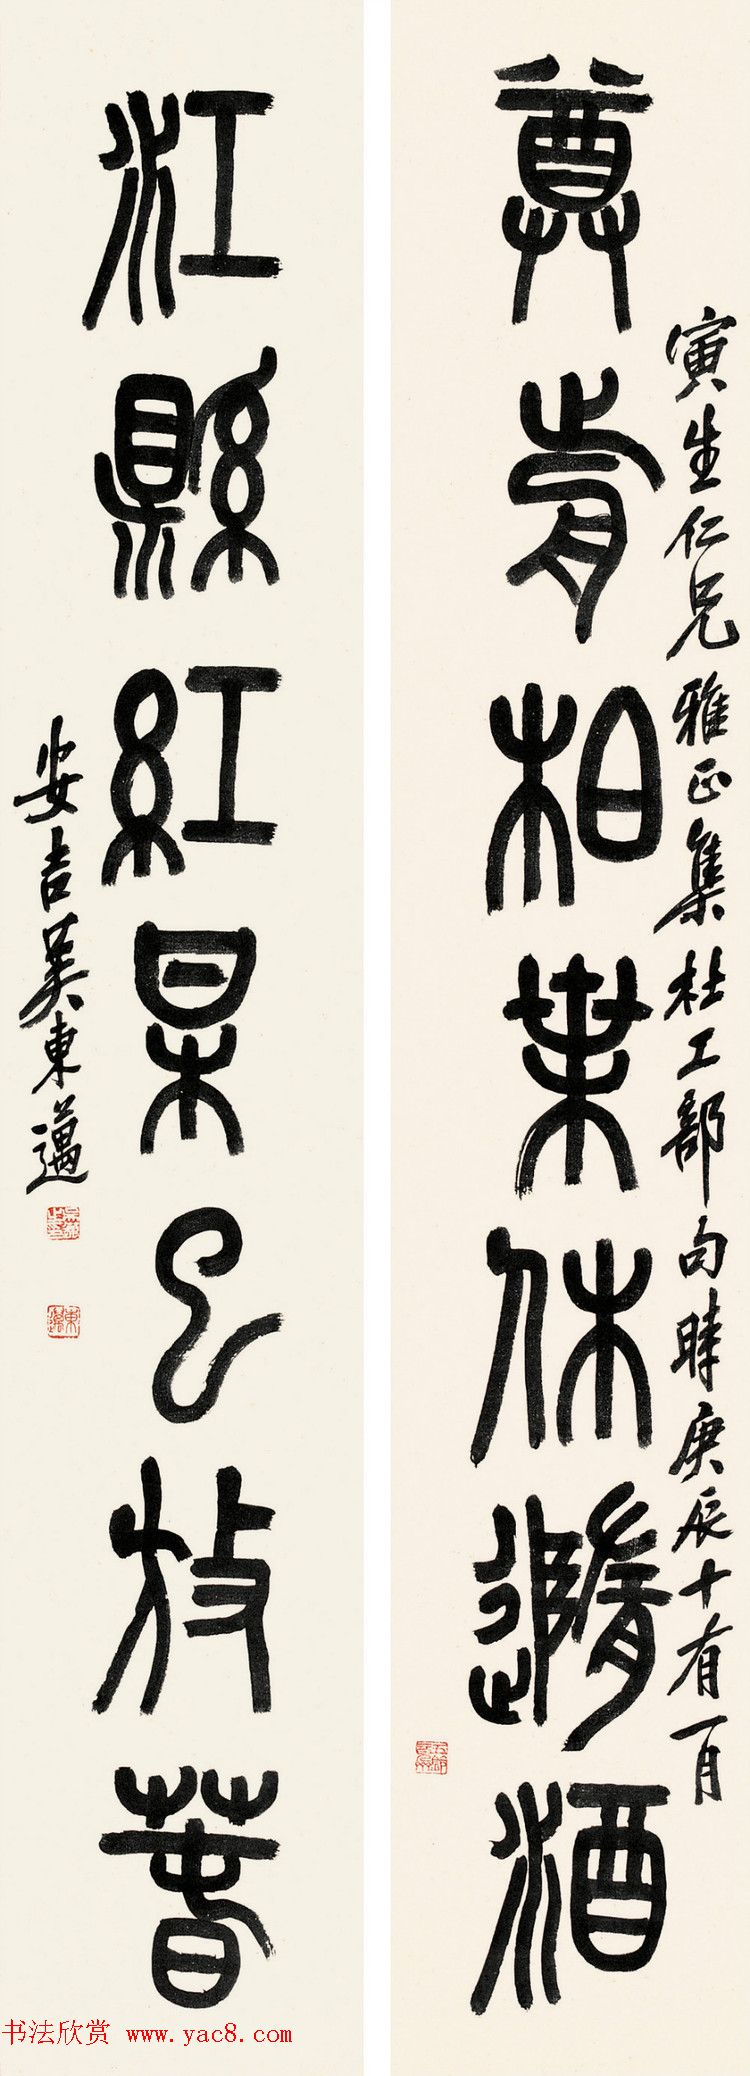 寅生仁兄雅正集杜工部句時庚辰十有一月
尊前柏葉休隨酒
江縣紅梅已放春
安吉吳東邁
书法欣赏 www.yac8.com